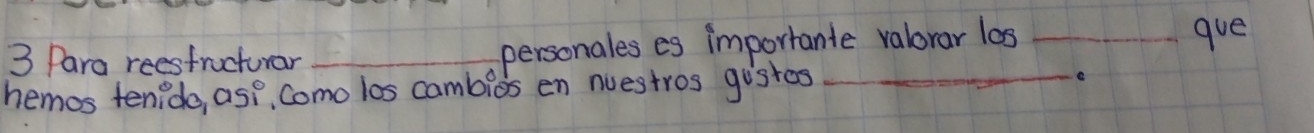 3 Para reestructurar ________ personales es importante valorar los ________ que
hemos tenido, así, como los cambios en nuestros gustos ________.